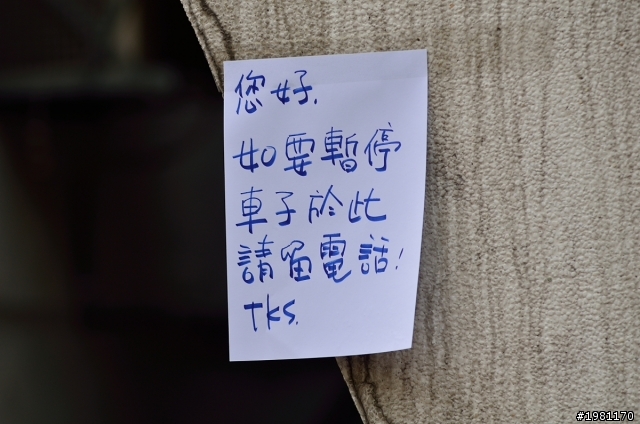 您好.
如要暫停
車子於此
請留電話!
tks.
#1981170